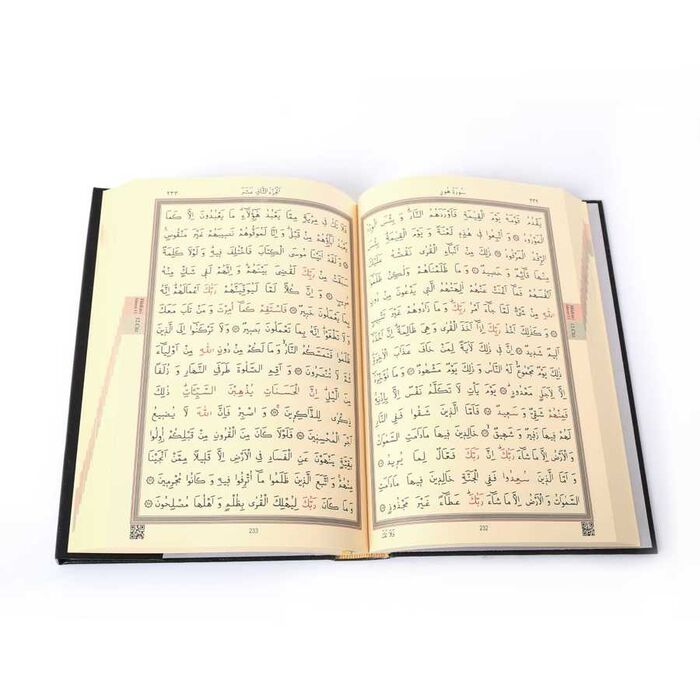 سُورَةُ هُودٍ ٢٣٢
يَقْدُمُ قَوْمَهُ يَوْمَ الْقِيٰمَةِ فَاَوْرَدَهُمُ النَّارَ وَبِئْسَ الْوِرْدُ
الْمَوْرُودُ ۝ وَاُتْبِعُوا فِي هٰذِهِ لَعْنَةً وَيَوْمَ الْقِيٰمَةِ بِئْسَ الرِّفْدُ
الْمَرْفُودُ ۝ ذٰلِكَ مِنْ اَنْبَاءِ الْقُرٰى نَقُصُّهُ عَلَيْكَ مِنْهَا
قَائِمٌ وَحَصِيدٌ ۝ وَمَا ظَلَمْنَاهُمْ وَلٰكِنْ ظَلَمُوا
اَنْفُسَهُمْ فَمَا اَغْنَتْ عَنْهُمْ اٰلِهَتُهُمُ الَّتِي يَدْعُونَ مِنْ دُونِ
اللّٰهِ مِنْ شَيْءٍ لَمَّا جَاءَ اَمْرُ رَبِّكَ وَمَا زَادُوهُمْ غَيْرَ تَتْبِيبٍ ۝
وَكَذٰلِكَ اَخْذُ رَبِّكَ اِذَا اَخَذَ الْقُرٰى وَهِيَ ظَالِمَةٌ اِنَّ اَخْذَهُ
اَلِيمٌ شَدِيدٌ ۝ اِنَّ فِي ذٰلِكَ لَاٰيَةً لِمَنْ خَافَ عَذَابَ الْاٰخِرَةِ
ذٰلِكَ يَوْمٌ مَجْمُوعٌ لَهُ النَّاسُ وَذٰلِكَ يَوْمٌ مَشْهُودٌ ۝ وَمَا نُؤَخِّرُهُ
اِلَّا لِاَجَلٍ مَعْدُودٍ ۝ يَوْمَ يَأْتِ لَا تَكَلَّمُ نَفْسٌ اِلَّا بِاِذْنِهِ
فَمِنْهُمْ شَقِيٌّ وَسَعِيدٌ ۝ فَاَمَّا الَّذِينَ شَقُوا فَفِي النَّارِ
لَهُمْ فِيهَا زَفِيرٌ وَشَهِيقٌ ۝ خَالِدِينَ فِيهَا مَا دَامَتِ السَّمٰوَاتُ
وَالْاَرْضُ اِلَّا مَا شَاءَ رَبُّكَ اِنَّ رَبَّكَ فَعَّالٌ لِمَا يُرِيدُ ۝
وَاَمَّا الَّذِينَ سُعِدُوا فَفِي الْجَنَّةِ خَالِدِينَ فِيهَا مَا دَامَتِ
السَّمٰوَاتُ وَالْاَرْضُ اِلَّا مَا شَاءَ رَبُّكَ عَطَاءً غَيْرَ مَجْذُوذٍ ۝
232
فَلَا تَكُ
اَلْجُزْءُ الثَّانِي عَشَرَ ٢٣٣
فَلَا تَكُ فِي مِرْيَةٍ مِمَّا يَعْبُدُ هٰؤُلَاءِ مَا يَعْبُدُونَ اِلَّا كَمَا
يَعْبُدُ اٰبَاؤُهُمْ مِنْ قَبْلُ وَاِنَّا لَمُوَفُّوهُمْ نَصِيبَهُمْ غَيْرَ مَنْقُوصٍ ۝
وَلَقَدْ اٰتَيْنَا مُوسَى الْكِتَابَ فَاخْتُلِفَ فِيهِ وَلَوْلَا كَلِمَةٌ
سَبَقَتْ مِنْ رَبِّكَ لَقُضِيَ بَيْنَهُمْ وَاِنَّهُمْ لَفِي شَكٍّ مِنْهُ
مُرِيبٍ ۝ وَاِنَّ كُلًّا لَمَّا لَيُوَفِّيَنَّهُمْ رَبُّكَ اَعْمَالَهُمْ اِنَّهُ بِمَا
يَعْمَلُونَ خَبِيرٌ ۝ فَاسْتَقِمْ كَمَا اُمِرْتَ وَمَنْ تَابَ مَعَكَ
وَلَا تَطْغَوْا اِنَّهُ بِمَا تَعْمَلُونَ بَصِيرٌ ۝ وَلَا تَرْكَنُوا اِلَى الَّذِينَ
ظَلَمُوا فَتَمَسَّكُمُ النَّارُ وَمَا لَكُمْ مِنْ دُونِ اللّٰهِ مِنْ اَوْلِيَاءَ
ثُمَّ لَا تُنْصَرُونَ ۝ وَاَقِمِ الصَّلٰوةَ طَرَفَيِ النَّهَارِ وَزُلَفًا
مِنَ الَّيْلِ اِنَّ الْحَسَنَاتِ يُذْهِبْنَ السَّيِّـَٔاتِ ذٰلِكَ
ذِكْرٰى لِلذَّاكِرِينَ ۝ وَاصْبِرْ فَاِنَّ اللّٰهَ لَا يُضِيعُ
اَجْرَ الْمُحْسِنِينَ ۝ فَلَوْلَا كَانَ مِنَ الْقُرُونِ مِنْ قَبْلِكُمْ اُولُوا
بَقِيَّةٍ يَنْهَوْنَ عَنِ الْفَسَادِ فِي الْاَرْضِ اِلَّا قَلِيلًا مِمَّنْ اَنْجَيْنَا
مِنْهُمْ وَاتَّبَعَ الَّذِينَ ظَلَمُوا مَا اُتْرِفُوا فِيهِ وَكَانُوا مُجْرِمِينَ ۝
وَمَا كَانَ رَبُّكَ لِيُهْلِكَ الْقُرٰى بِظُلْمٍ وَاَهْلُهَا مُصْلِحُونَ ۝
233